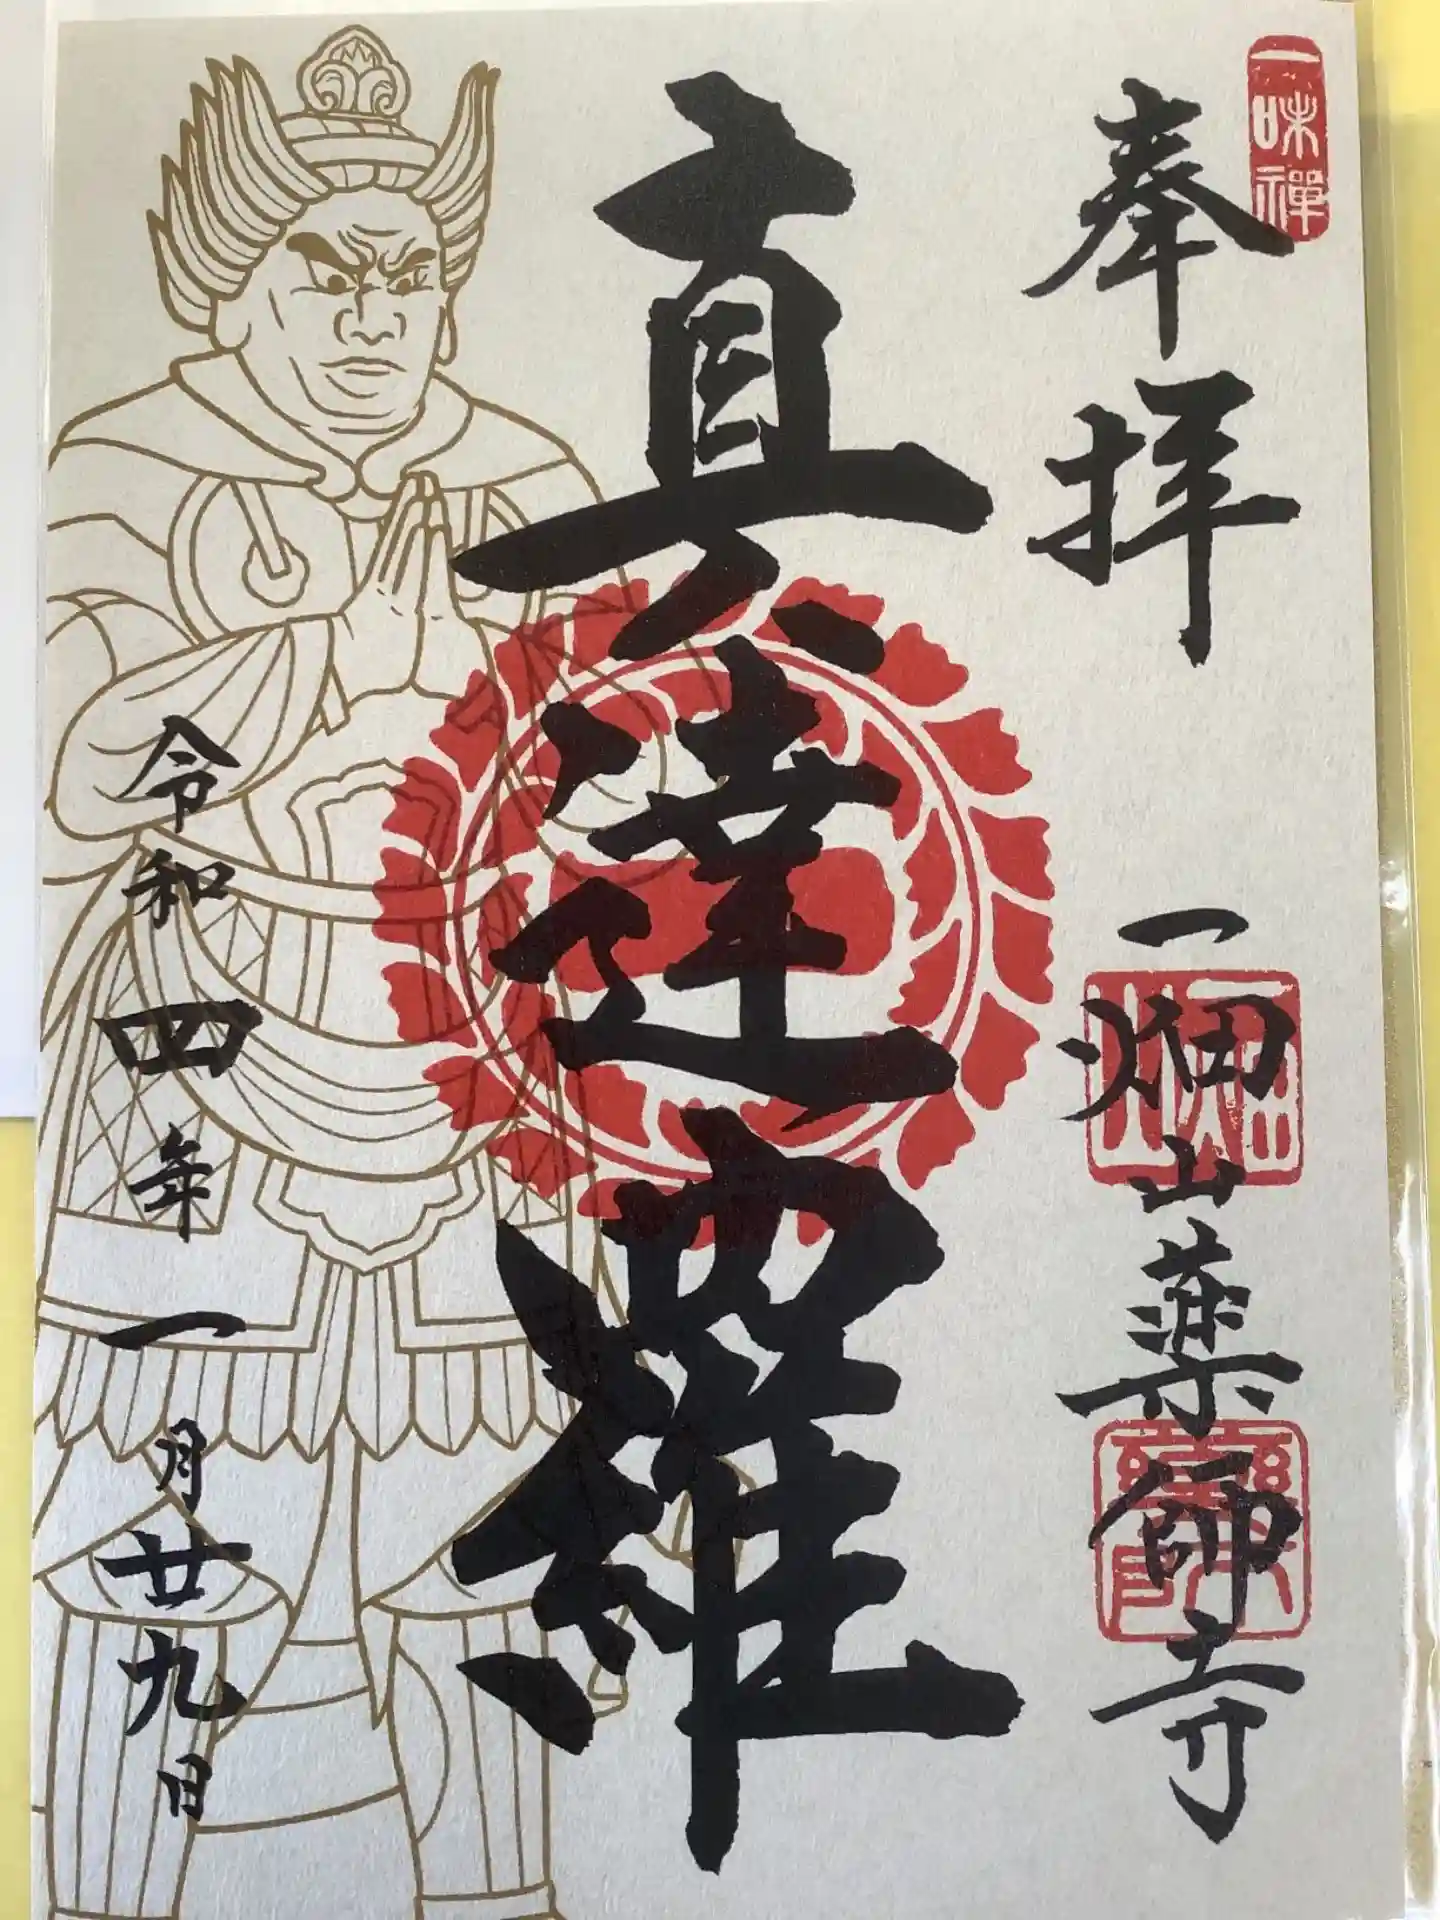 一味禅
奉拝
一畑山薬師寺
真達羅
令和四年一月廿九日